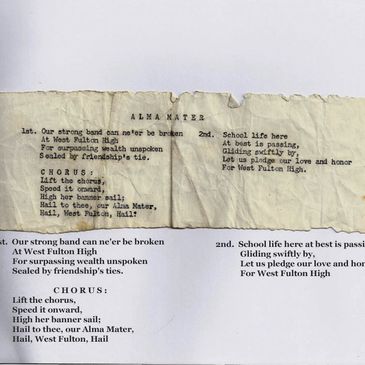 ALMA MATER
1st. Our strong band can ne'er be broken
At West Fulton High
For surpassing wealth unspoken
Sealed by friendship's tie.
CHORUS:
Lift the chorus,
Speed it onward,
High her banner sail;
Hail to thee, our Alma Mater,
Hail, West Fulton, Hail!
2nd. School life here
At best is passing,
Gliding swiftly by,
Let us pledge our love and honor
For West Fulton High.
st. Our strong band can ne'er be broken
At West Fulton High
For surpassing wealth unspoken
Sealed by friendship's ties.
CHORUS:
Lift the chorus,
Speed it onward,
High her banner sail;
Hail to thee, our Alma Mater,
Hail, West Fulton, Hail
2nd. School life here at best is passi
Gliding swiftly by,
Let us pledge our love and hon
For West Fulton High